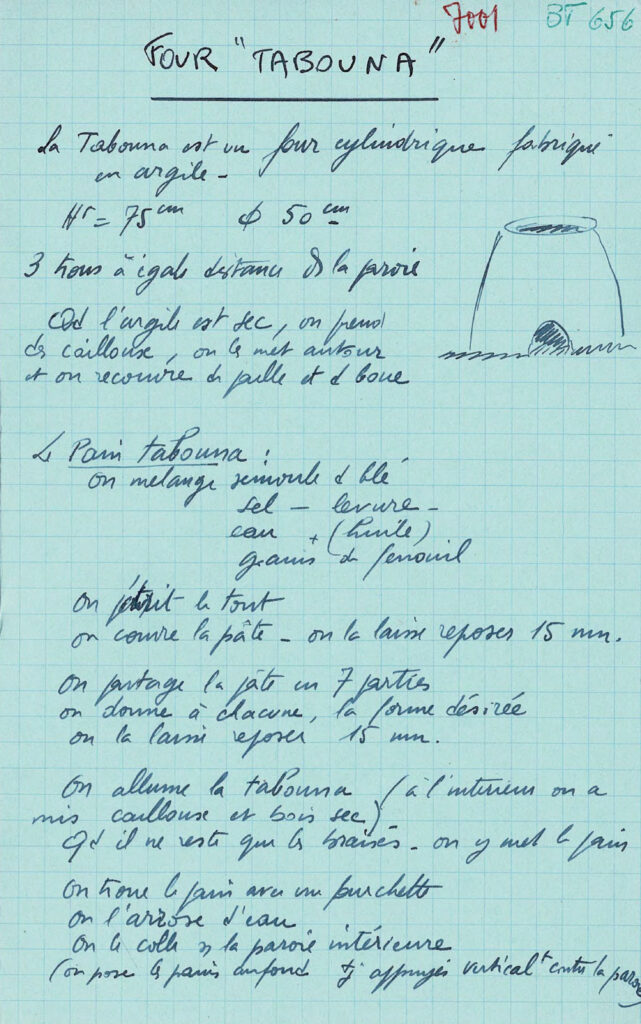 7001 BT 656
FOUR "TABOUNA"
La Tabouna est un four cylindrique fabriqué
en argile -
Hr = 75 cm ϕ 50 cm
3 trous à égale distance ds la paroie
Qd l'argile est sec, on prend
des caillouse, on les met autour
et on recouvre de paille et d boue
Le Pain tabouna :
on mélange semoule d blé
sel - levure -
eau + (huile)
grains de fenouil
on pétrit le tout
on couvre la pâte - on la laisse reposer 15 mn.
On partage la pâte en 7 parties
on donne à chacune, la forme désirée
on la laisse reposer 15 mn.
On allume la tabouna (à l'intérieur on a
mis caillouse et bois sec)
Qd il ne reste que les braises - on y met le pain
On troue le pain avec une fourchette
On l'arrose d'eau
On le colle sr la paroie intérieure
(on pose les pains au fond tj appuyés verticalt contre la paroie)